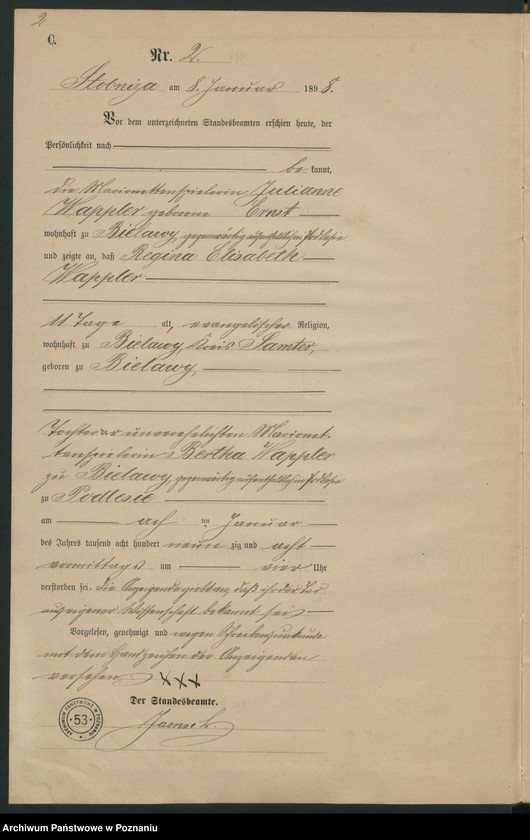 2
C.
Nr. 2.
Stobnica am 8. Januar 1898.
Vor dem unterzeichneten Standesbeamten erschien heute, der
Persönlichkeit nach
be kannt,
die Marionettenspielerin Julianne
Wappler geborene Ernst
wohnhaft zu Bielawy, gegenwärtig aufenthaltlich in Podlesie
und zeigte an, daß Regina Elisabeth
Wappler
11 Tage alt, evangelischer Religion,
wohnhaft zu Bielawy, Kreis Samter,
geboren zu Bielawy,
Tochter der unverehelichten Marionet-
tenspielerin Bertha Wappler
zu Bielawy, gegenwärtig aufenthaltlich in Podlesie
zu Podlesie
am ach ten Januar
des Jahres tausend acht hundert neun zig und acht
vormittags um vier Uhr
verstorben sei. die Anzeigende gibt an, daß ihr der Tod
aus eigener Wissenschaft bekannt sei
Vorgelesen, genehmigt und wegen Schreibensunkunde
mit dem Handzeichen der Anzeigenden
versehen. xxx
Der Standesbeamte.
ARCHIWUM PAŃSTWOWE W POZNANIU
53
Archiwum Państwowe w Poznaniu